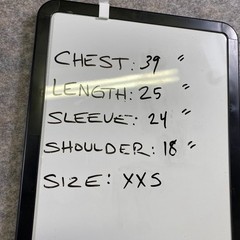 CHEST: 39 "
LENGTH: 25 "
SLEEVE: 24 "
SHOULDER: 18 "
SIZE: XXS